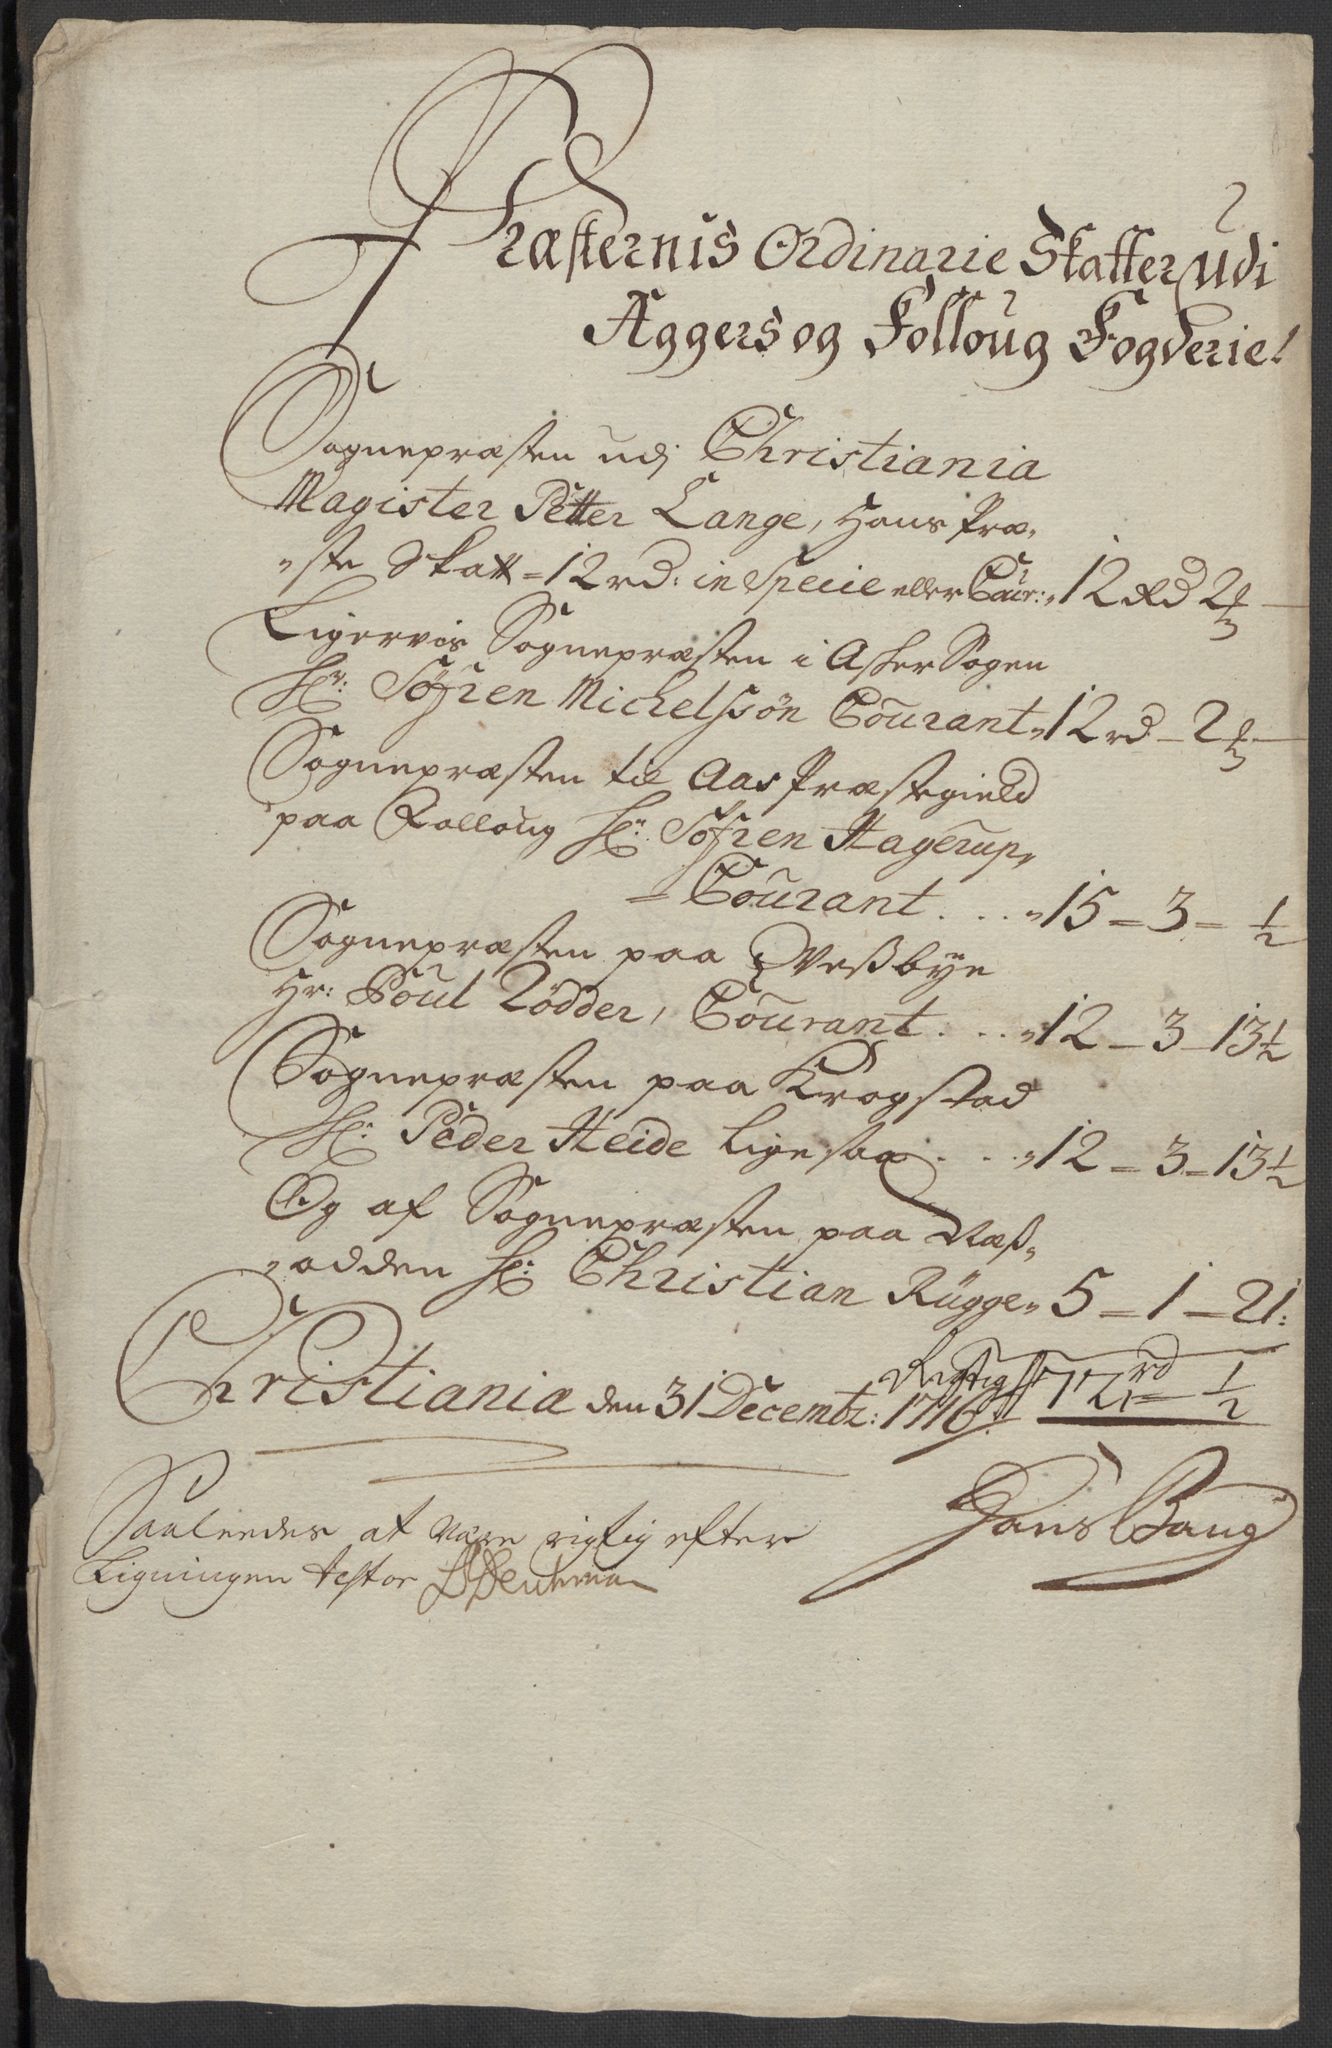 Præsternis Ordinarie Skatter udi
Aggers og Folloug Fogderie!
Sognepræsten udj Christiania
Magister Petter Lange, Hans Præ-
-ste Skatt = 12 rd: in Specie eller Cour: 12 Rd 2 ß —
Ligerviis Sognepræsten i Asker Sogen
Hr: Søfren Michelssön Courant 12 rd — 2 ß —
Sognepræsten til Aas Præstegield
paa Folloug Hr: Søfren Hagerup,
= Courant . . . 15 = 3 = ½
Sognepræsten paa Weßbye
Hr: Poul Rödder, Courant . . . 12 — 3 — 13½
Sognepræsten paa Krogstad
Hr: Peder Heide ligesaa . . . 12 = 3 = 13½
Og af Sognepræsten paa Næß-
-odden Hr: Christian Rügge 5 = 1 — 21:
Rigtig 72 rd = ½
Christiania den 31 Decembr: 1716
Hans Bang
Saaleedes at være rigtig efter
Ligningen tester